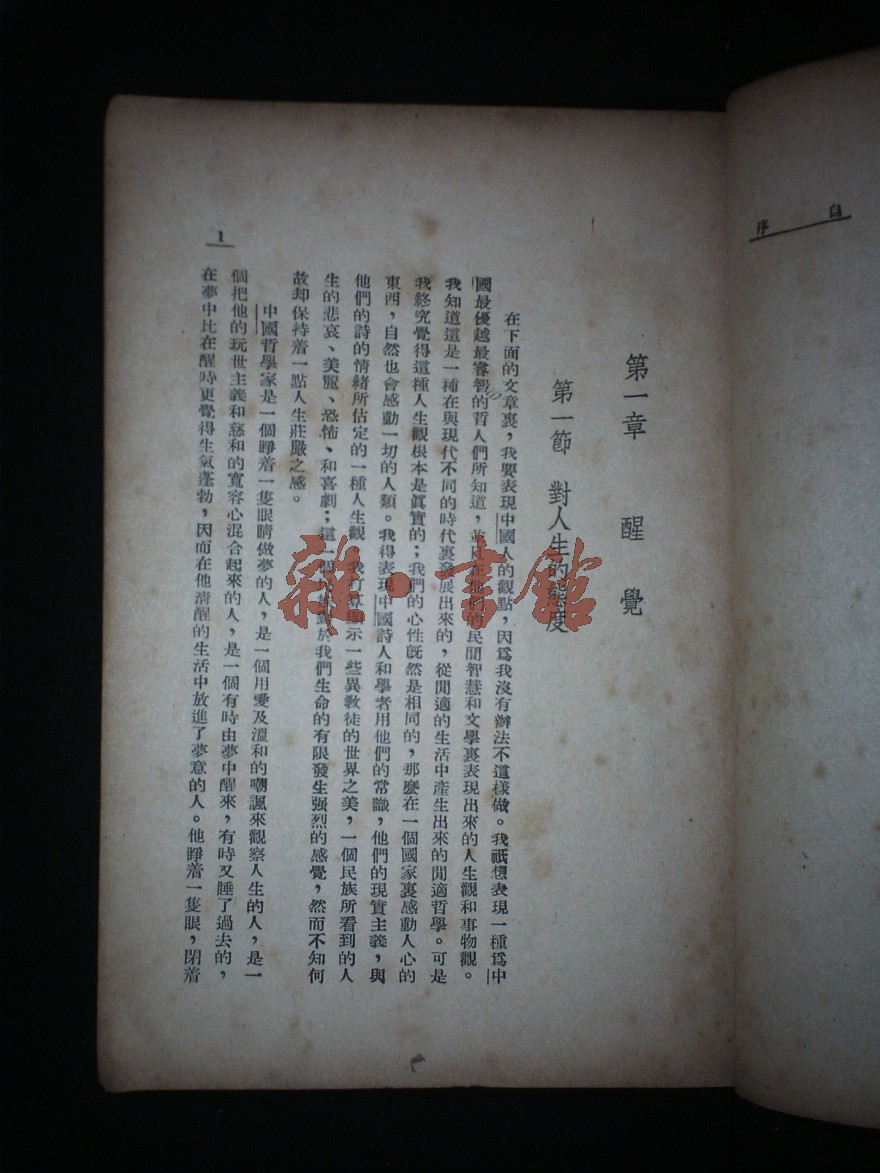 自序
第一章 醒覺
第一節 對人生的態度
在下面的文章裏，我要表現中國人的觀點，因爲我沒有辦法不這樣做。我祇想表現一種爲中
國最優越最睿智的哲人們所知道，並且在他們的民間智慧和文學裏表現出來的人生觀和事物觀。
我知道這是一種在與現代不同的時代裏發展出來的，從閒適的生活中產生出來的閒適哲學。可是
我終究覺得這種人生觀根本是眞實的；我們的心性旣然是相同的，那麽在一個國家裏感動人心的
東西，自然也會感動一切的人類。我得表現中國詩人和學者用他們的常識，他們的現實主義，與
他們的詩的情緒所估定的一種人生觀。我打算顯示一些異教徒的世界之美，一個民族所看到的人
生的悲哀、美麗、恐怖、和喜劇；這一個民族對於我們生命的有限發生强烈的感覺，然而不知何
故却保持着一點人生莊嚴之感。
中國哲學家是一個睜着一隻眼睛做夢的人，是一個用愛及溫和的嘲諷來觀察人生的人，是一
個把他的玩世主義和慈和的寬容心混合起來的人，是一個有時由夢中醒來，有時又睡了過去的，
在夢中比在醒時更覺得生氣蓬勃，因而在他清醒的生活中放進了夢意的人。他睜着一隻眼，閉着
1
雜·書館